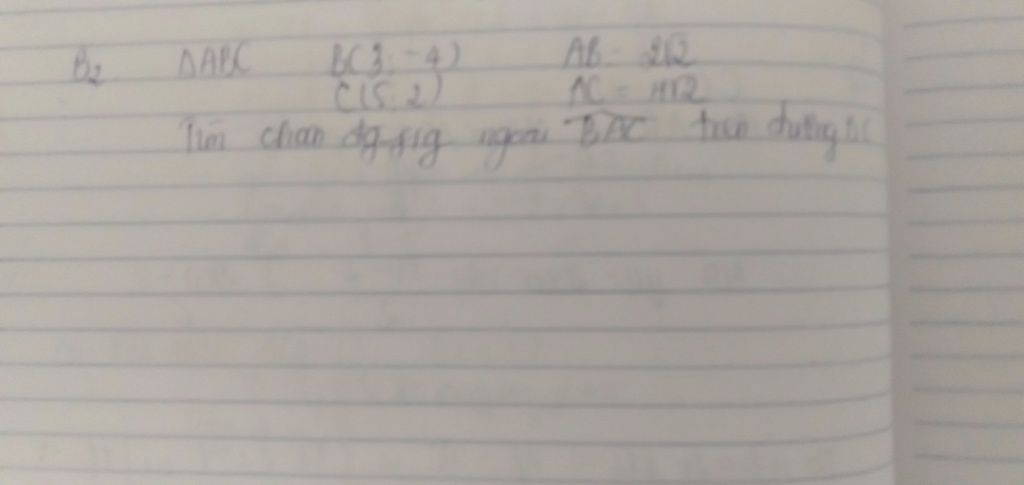 B2 ΔABC B(3; -4) AB = 2√2
C(5; 2) AC = 4√2
Tìm chân đg pg ngoài BAC trên đường BC